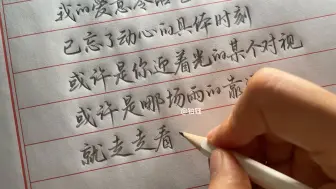 我的爱意令
已忘了动心的具体时刻
或许是你迎着光的某个对视
或许是哪场雨的靠
就走走看